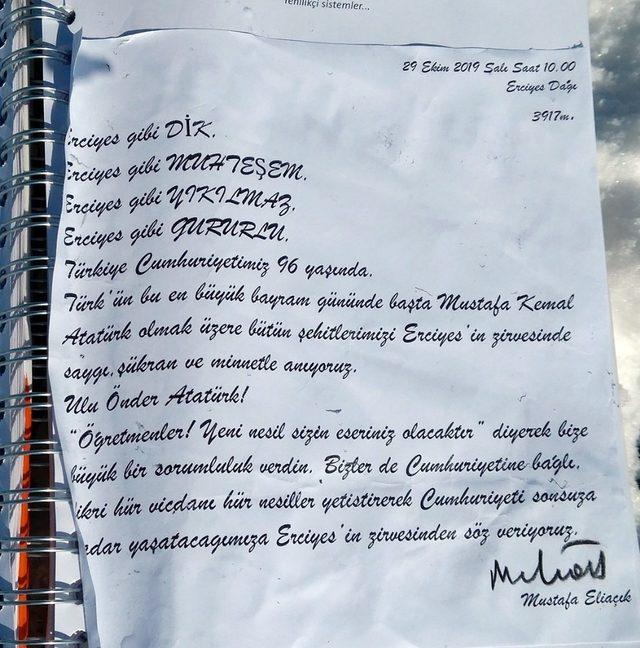 Yenilikçi sistemler...
29 Ekim 2019 Salı Saat 10.00
Erciyes Dağı
3917m.
Erciyes gibi DİK.
Erciyes gibi MUHTEŞEM.
Erciyes gibi YIKILMAZ.
Erciyes gibi GURURLU.
Türkiye Cumhuriyetimiz 96 yaşında.
Türk'ün bu en büyük bayram gününde başta Mustafa Kemal
Atatürk olmak üzere bütün şehitlerimizi Erciyes'in zirvesinde
saygı,şükran ve minnetle anıyoruz.
Ulu Önder Atatürk!
"Öğretmenler! Yeni nesil sizin eseriniz olacaktır" diyerek bize
büyük bir sorumluluk verdin. Bizler de Cumhuriyetine bağlı,
fikri hür vicdanı hür nesiller yetistirerek Cumhuriyeti sonsuza
kadar yaşatacagımıza Erciyes'in zirvesinden söz veriyoruz.
Mustafa Eliaçık